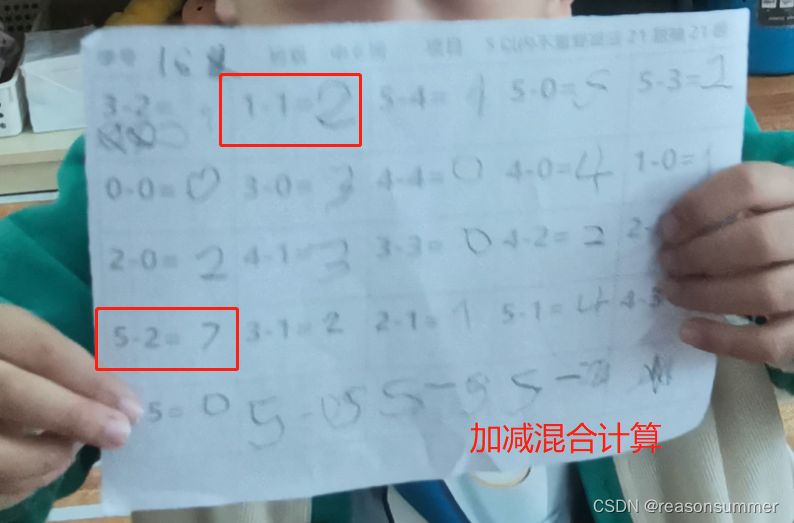 学号 16 班级 中6班 项目 5以内不重复减法 21题抽21题
3-2= 1-1=2 5-4=1 5-0=5 5-3=2
0-0=0 3-0=3 4-4=0 4-0=4 1-0=1
2-0=2 4-1=3 3-3=0 4-2=2 2-
5-2=7 3-1=2 2-1=1 5-1=4 4-3
5=0 5-05 5-5 5-
加减混合计算
CSDN @reasonsummer